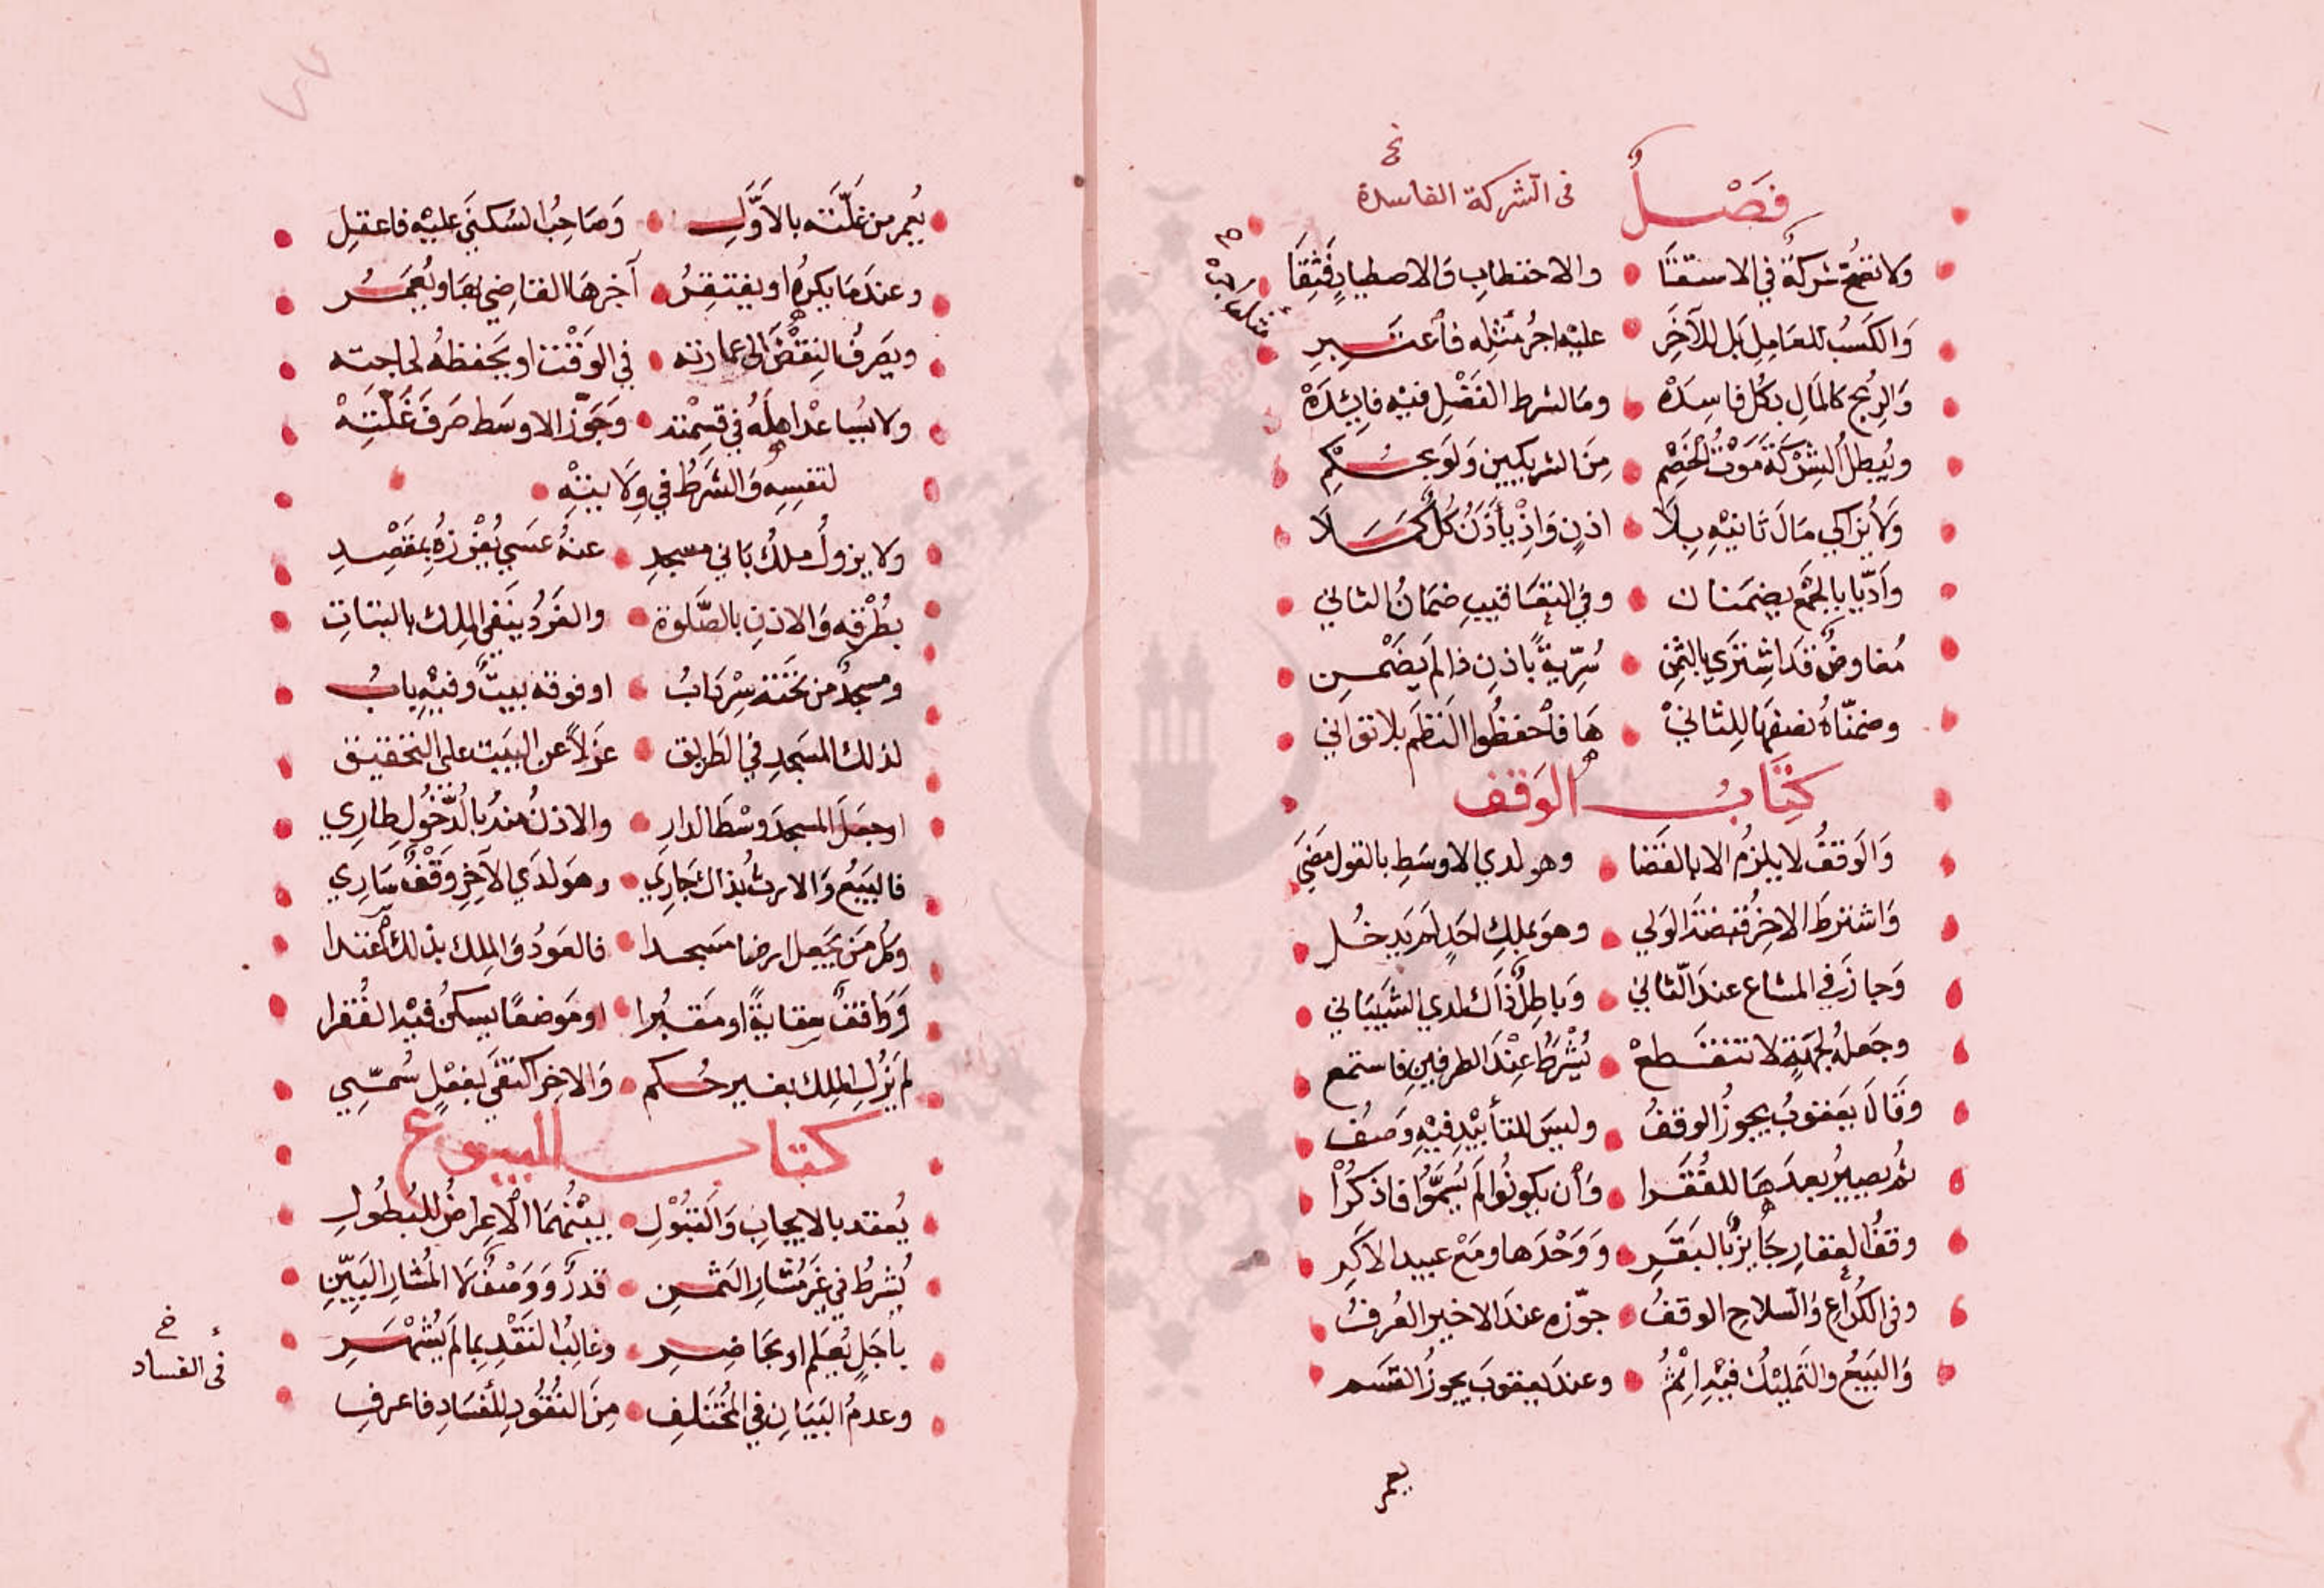 فَصْلٌ في الشركة الفاسدة
خ
وَلا تصُحّ شركةٌ في الاستقَا والاحتطابِ وَالاصطيادِ فَثِقَا
وَالكَسْبُ للعَامِل بَل للآخَرِ عليْه اجرُ مثلِه فاعتَبِرِ
وَالرِبح كالمَالِ بكُل فاسِدَهْ ومَا لشرط الفَضْلِ فيْه فايِدَهْ
ويُبطلُ الشِرْكَةَ مَوْتُ الخَصْمِ مِنَ الشريكيين وَلَو بحُكْمِ
وَلا يُزاكي مَالَ ثانيْهِ بِلَا اذنٍ وَاِذْ يأذَنُ كُلٌ كَمَلَا
وَاَدّيا بالجمْعِ يضمَنان وفي التعَاقيبِ ضمَانُ الثاني
مُفاوضٌ قَد اشترَي بالثمنِ سُرّيةً باذنِ ذا لم يَضْمنِ
وضمنّاهُ نصفهَا للِثاني هَا فاحفظُوا النَظمَ بلا تواني
كتَابُ الوَقف
وَالوَقفُ لا يلزمُ الا بالقضَا وهو لدي الاوسَطِ بالقول مضَي
وَاشترطَ الاخِرُ قبضَ الوَلي وهوَ بملكِ احَدٍ لم يَدخُل
وَجازَ في المشاع عندَ الثاني وَباطِلٌ ذَاك لدي الشَيبَاني
وجَعلهُ لجهَةٍ لا تنقَطعْ يُشْرَطُ عِنْدَ الطرفينِ فاستمع
وقَالَ يَعقوبُ يجوزُ الوقفُ وليسَ للتأبيْدِ فيْهِ وَصفُ
ثمُ يصيرُ بعدَهَا للفُقَرا وَأن يكونُوا لَم يُسَمَّوا فاذكُرْا
وقفُ العِقارِ جَايزٌ بالبقَرِ وَوَحْدَها ومَعْ عبيد الاكَرِ
وفي الكُراعِ وَالسلاح الوقفُ جوّزه عندَ الاخير العُرفُ
وَالبَيعُ والتَمليْكُ فيْه اِثْمُ وعندَ يعقوبَ يجوزُ القَسَم
يعمر
يُعمر من غَلّته بالاَوَّلِ وَصَاحِبُ السُكنَي عليْه فاعقِلِ
وعندَمَا يكرهُ او يفتقِرُ آجرهَا القاضِي بهَا ويُعمَرُ
ويَصرفُ النِقضَ الى عمارته في الوَقْت او يَحفظهُ لحاجته
ولا يُباعْ اهلَهُ في قِسمْته وَجَوَّز الاوسَط صَرفَ غَلّتِهْ
لنفسِهِ وَالشَرطُ في وِلَايتِهْ
وَلا يزولُ ملكُ بَاني مسجدِ عنهُ عسَي يُفْرزهُ بمَقصِدِ
بطُرْقه وَالاذنِ بالصَّلوة والفَردُ ينَفي المِلك بالبتاتِ
ومسجدٌ من تَحته سِرْدَابُ او فوقه بيتٌ وفيْهِ بابُ
لذلك المسَجدِ في الطريق عَزلاً عن البيت على التحقيق
اوجعَلَ المسجدَ وسْطَ الدارِ والاذنُ منهُ بالدُّخُولِ طارِي
فالبَيعُ وَالارثُ بذاك جَارِي وهوَ لدَي الآخِرِ وَقْفٌ سَارِي
وكُل مَن يَجعل ارضا مسَجدا فالعَودُ وَالملك بذلك اعتدا
وَوَاقفٌ سِقايةً او مَقبُرا او مَوضعًا يسكنُ فيْه الفُقرا
لم يَزُلِ المِلك بغير حُكم وَالاخِر اكتفَي بفعْلٍ سُمّي
كتاب البيوع
يُعقد بالايجابِ وَالقبُوْلِ بينْهُمَا الاعِراضُ للبُطُولِ
يُشرطُ في غَر مُشارِ الثمنِ قدرٌ وَوَصفٌ لَا المُشارِ البَيِّنِ
بأجَلٍ يُعلم او بحَاضِرِ وغالِبُ النَقدِ بِما لَم يُشهَرِ
وعدمُ البَيَانِ في المُختلِفِ مِنَ النُقُودِ للفَسَادِ فاعرفِ
خ
في الفساد